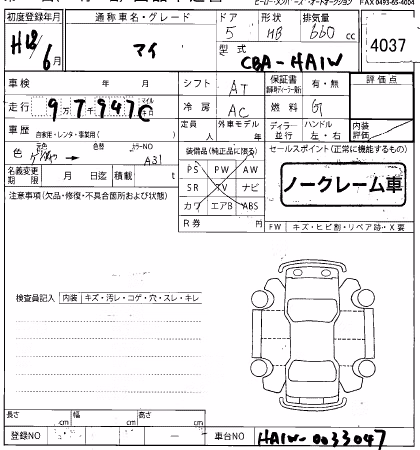 FAX 0493-65-4004
初度登録年月 通称車名・グレード ドア 形状 排気量
H18 6月 アイ 5 HB 660cc
型式 CBA-HA1W
4037
車検 年 月 シフト AT 保証書 有・無 評価点
走行 97947 冷房 AC 燃料 G
定員 人 外車モデル 年 ディーラー 並行 ハンドル 左・右 内装評価
車歴 自家用・レンタ・事業用( )
色 元色 → 色替 カラーNO A31
装備品(純正品に限る) セールスポイント(正常に機能するもの)
PS PW AW
SR TV ナビ
カワ エアB ABS
ノークレーム車
名義変更期限 月 日迄 積載 t
注意事項(欠品・修復・不具合箇所および状態)
R券 ¥
FW キズ・ヒビ割・リペア跡・X要
検査員記入 内装 キズ・汚レ・コゲ・穴・スレ・キレ
長さ cm 幅 cm 高さ cm
登録NO ー 車台NO HA1W-0033047